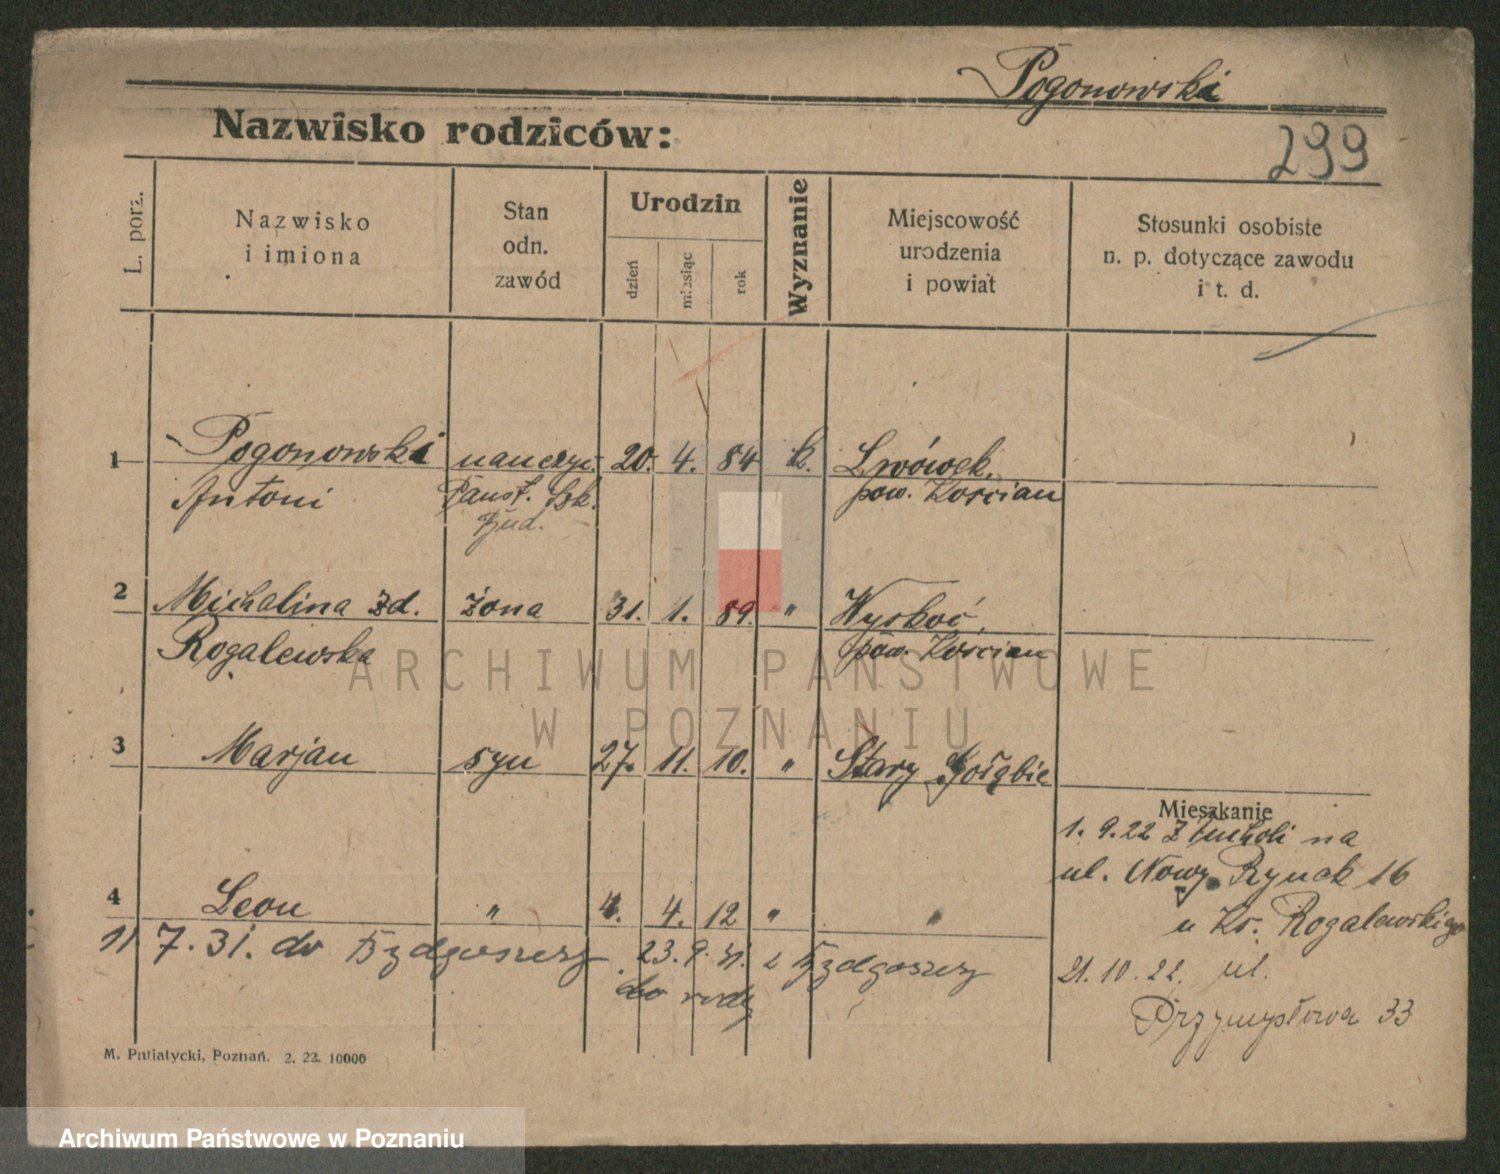 Pogonowski
299
Nazwisko rodziców:
L. porz.
Nazwisko
i imiona
Stan
odn.
zawód
Urodzin
dzień
miesiąc
rok
Wyznanie
Miejscowość
urodzenia
i powiat
Stosunki osobiste
n. p. dotyczące zawodu
i t. d.
1 Pogonowski nauczyc. 20. 4. 84 k. Lwówek,
Antoni Państ. Szk. pow. Kościan
Bud.
2 Michalina zd. żona 31. 1. 89. " Wyskoć,
Rogalewska pow. Kościan
ARCHIWUM PAŃSTWOWE
W POZNANIU
3 Marjan syn 27. 11. 10. " Stary Gołębie
Mieszkanie
1. 9.22 z Tucholi na
ul. Nowy Rynek 16
u Ks. Rogalewskiego
21.10.22. ul.
Przemysłowa 33
4 Leon " 4. 4. 12 " "
11 7. 31. do Bydgoszczy 23. 9. 31. z Bydgoszczy
do rodz
M. Putiatycki, Poznań. 2. 22. 10000
Archiwum Państwowe w Poznaniu